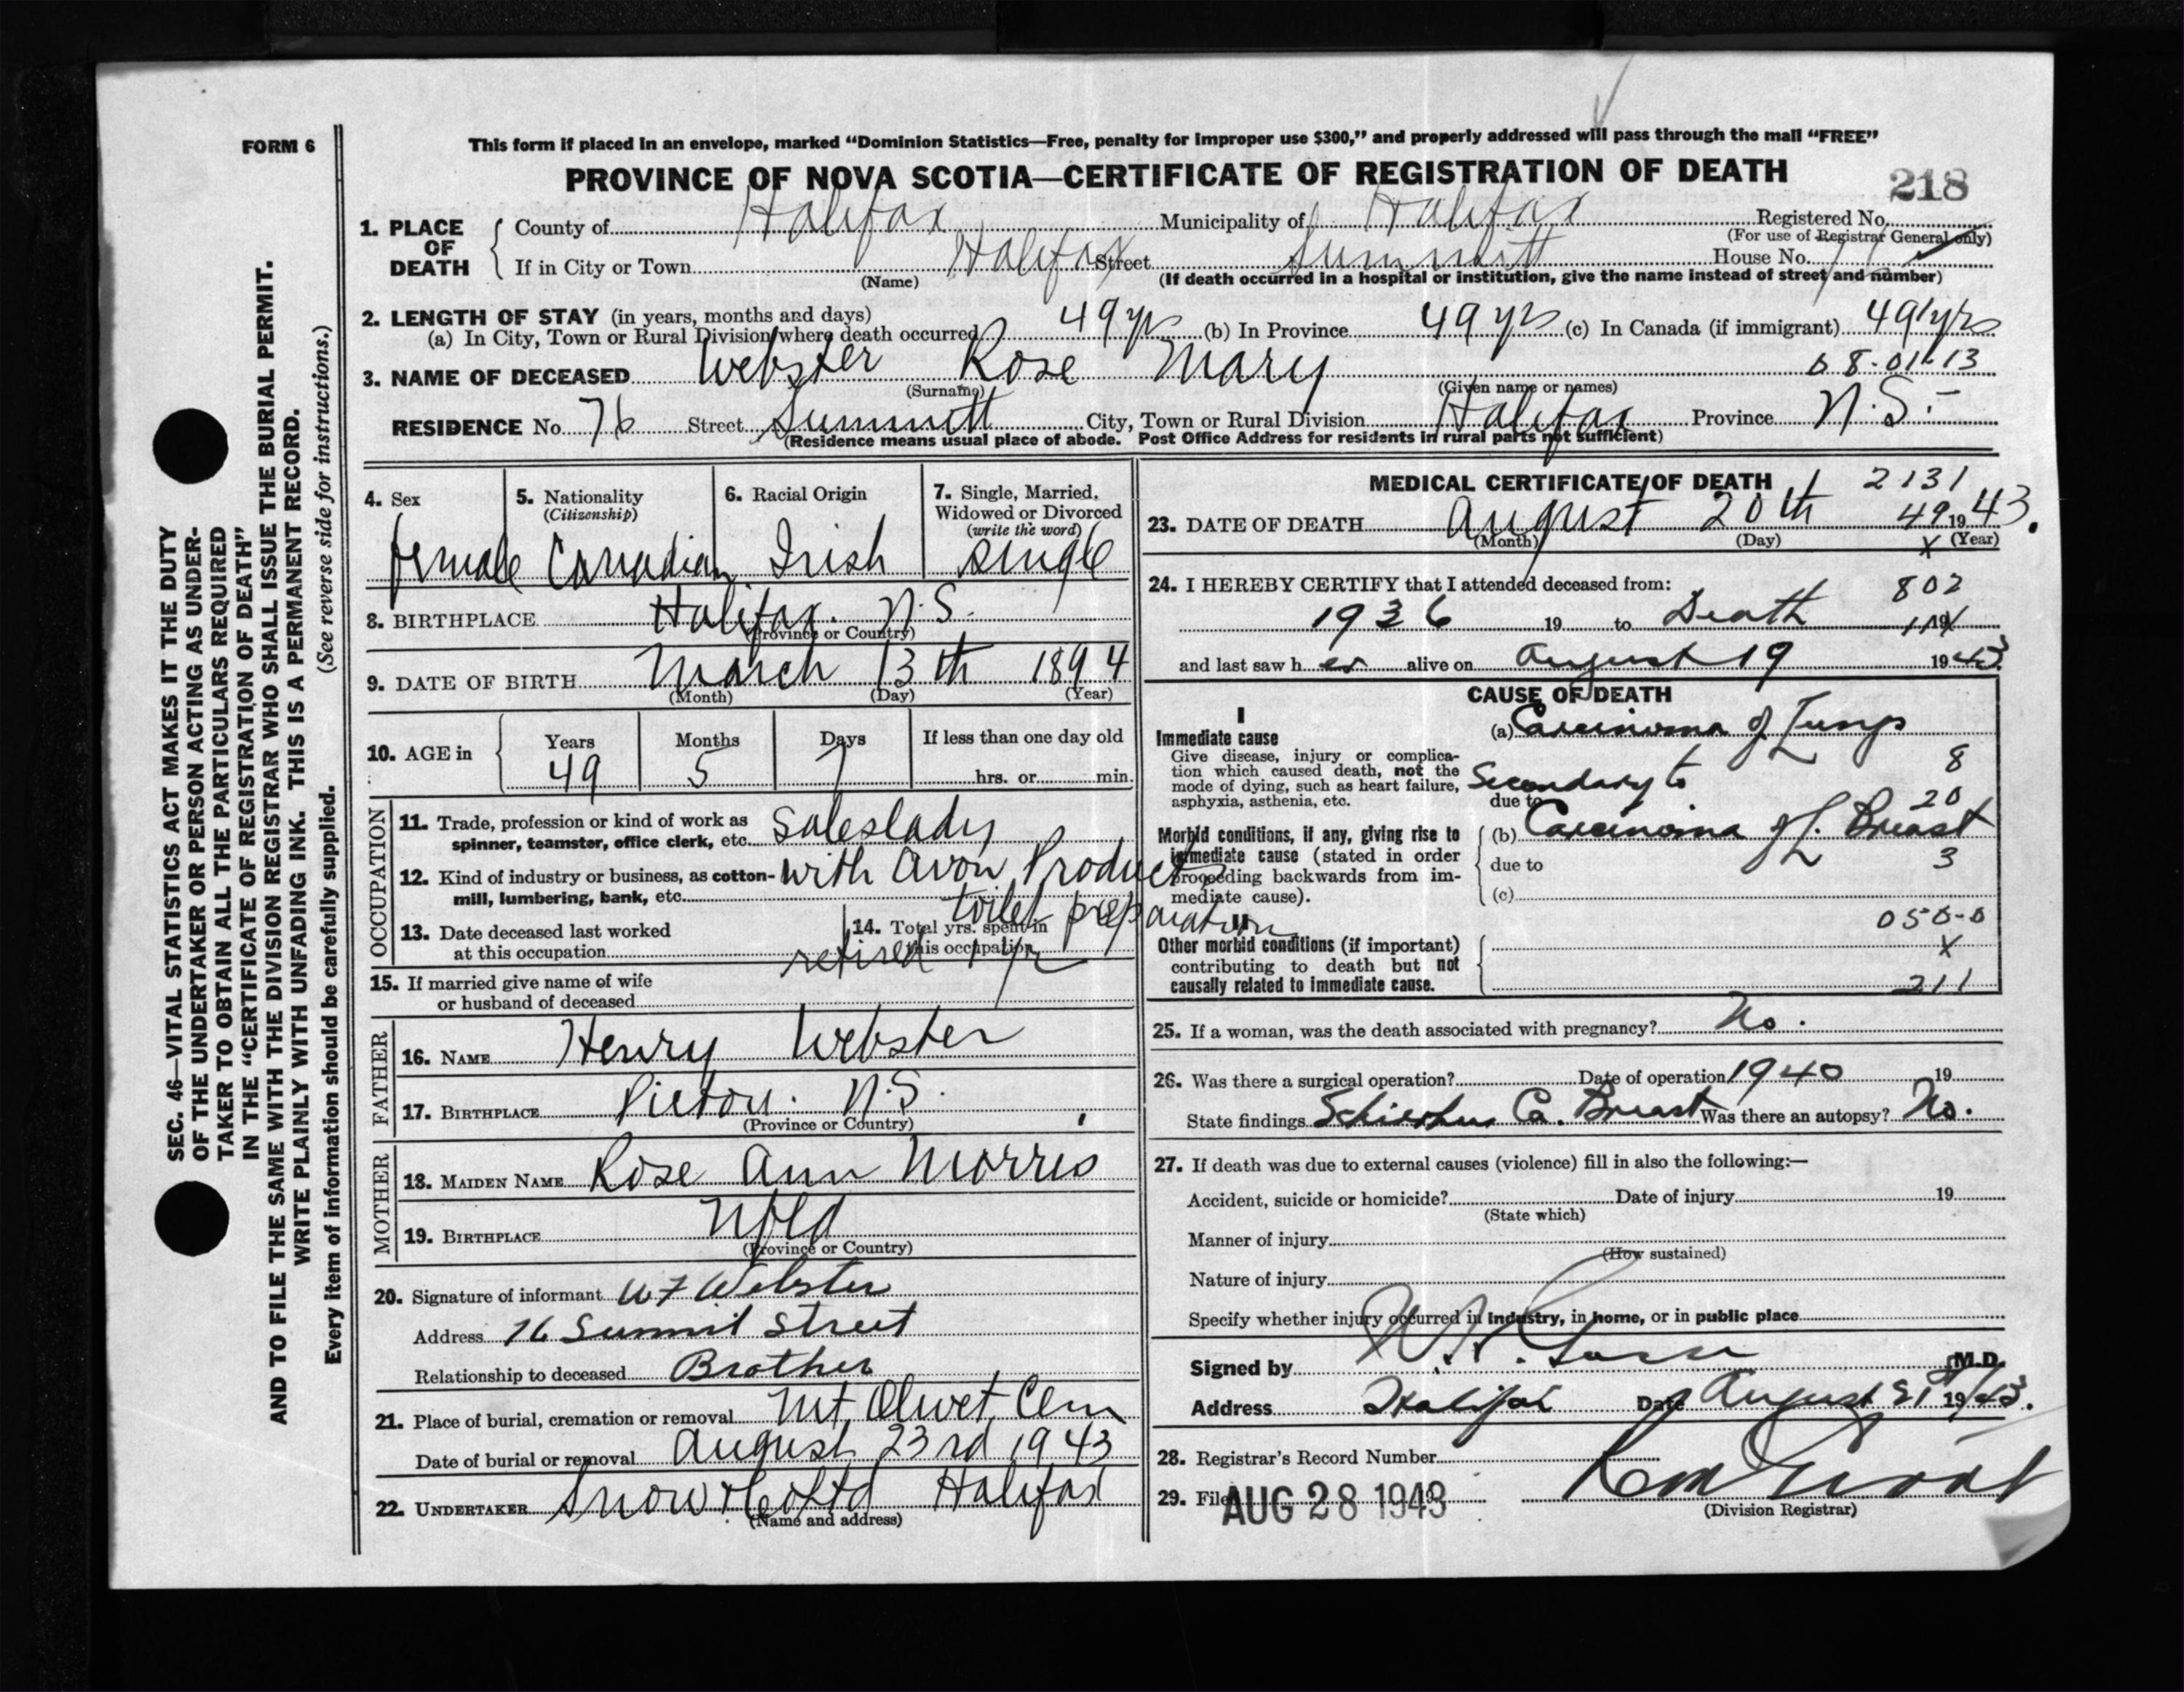 FORM 6
This form if placed in an envelope, marked “Dominion Statistics—Free, penalty for improper use $300,” and properly addressed will pass through the mail “FREE”
PROVINCE OF NOVA SCOTIA—CERTIFICATE OF REGISTRATION OF DEATH
218
1. PLACE OF DEATH
County of Halifax Municipality of Halifax Registered No.
(For use of Registrar General only)
If in City or Town Halifax Street Summitt House No. 76
(Name) (If death occurred in a hospital or institution, give the name instead of street and number)
2. LENGTH OF STAY (in years, months and days)
(a) In City, Town or Rural Division where death occurred 49 yrs (b) In Province 49 yrs (c) In Canada (if immigrant) 49 yrs
08-01-13
3. NAME OF DECEASED Webster Rose Mary
(Surname) (Given name or names)
RESIDENCE No. 76 Street Summitt City, Town or Rural Division Halifax Province N.S.-
(Residence means usual place of abode. Post Office Address for residents in rural parts not sufficient)
4. Sex 5. Nationality 6. Racial Origin 7. Single, Married,
(Citizenship) Widowed or Divorced
(write the word)
female Canadian Irish single
8. BIRTHPLACE Halifax. N.S.
(Province or Country)
9. DATE OF BIRTH March 13th 1894
(Month) (Day) (Year)
10. AGE in Years Months Days If less than one day old
49 5 7 hrs. or min.
OCCUPATION
11. Trade, profession or kind of work as
spinner, teamster, office clerk, etc. Saleslady
12. Kind of industry or business, as cotton-
mill, lumbering, bank, etc. with Avon Products
toilet preparation
13. Date deceased last worked
at this occupation
14. Total yrs. spent in
this occupation
retired 1 yr
15. If married give name of wife
or husband of deceased
FATHER
16. NAME Henry Webster
17. BIRTHPLACE Pictou. N.S.
(Province or Country)
MOTHER
18. MAIDEN NAME Rose Ann Morris
19. BIRTHPLACE Nfld
(Province or Country)
20. Signature of informant W F Webster
Address 76 Summit Street
Relationship to deceased Brother
21. Place of burial, cremation or removal Mt. Olivet Cem
Date of burial or removal August 23rd 1943
22. UNDERTAKER Snow & Co Ltd Halifax
(Name and address)
MEDICAL CERTIFICATE OF DEATH 2131
23. DATE OF DEATH August 20th 49 1943.
(Month) (Day) X (Year)
24. I HEREBY CERTIFY that I attended deceased from: 802
1936 19 to Death 19
and last saw h er alive on August 19 1943
CAUSE OF DEATH
I
Immediate cause
Give disease, injury or complica-
tion which caused death, not the
mode of dying, such as heart failure,
asphyxia, asthenia, etc.
(a) Carcinoma of Lungs
8
Secondary to
due to
20
Morbid conditions, if any, giving rise to
immediate cause (stated in order
proceeding backwards from im-
mediate cause).
(b) Carcinoma of L. Breast
due to 3
(c)
050-0
II
Other morbid conditions (if important)
contributing to death but not
causally related to immediate cause.
X
211
25. If a woman, was the death associated with pregnancy? No.
26. Was there a surgical operation? Date of operation 1940 19
State findings Ca. Breast Was there an autopsy? No.
27. If death was due to external causes (violence) fill in also the following:—
Accident, suicide or homicide? Date of injury 19
(State which)
Manner of injury
(How sustained)
Nature of injury
Specify whether injury occurred in industry, in home, or in public place
Signed by M.D.
Address Halifax Date August 21 1943.
28. Registrar's Record Number
29. Filed AUG 28 1943
(Division Registrar)
SEC. 46—VITAL STATISTICS ACT MAKES IT THE DUTY
OF THE UNDERTAKER OR PERSON ACTING AS UNDER-
TAKER TO OBTAIN ALL THE PARTICULARS REQUIRED
IN THE “CERTIFICATE OF REGISTRATION OF DEATH”
AND TO FILE THE SAME WITH THE DIVISION REGISTRAR WHO SHALL ISSUE THE BURIAL PERMIT.
WRITE PLAINLY WITH UNFADING INK. THIS IS A PERMANENT RECORD.
Every item of information should be carefully supplied. (See reverse side for instructions.)